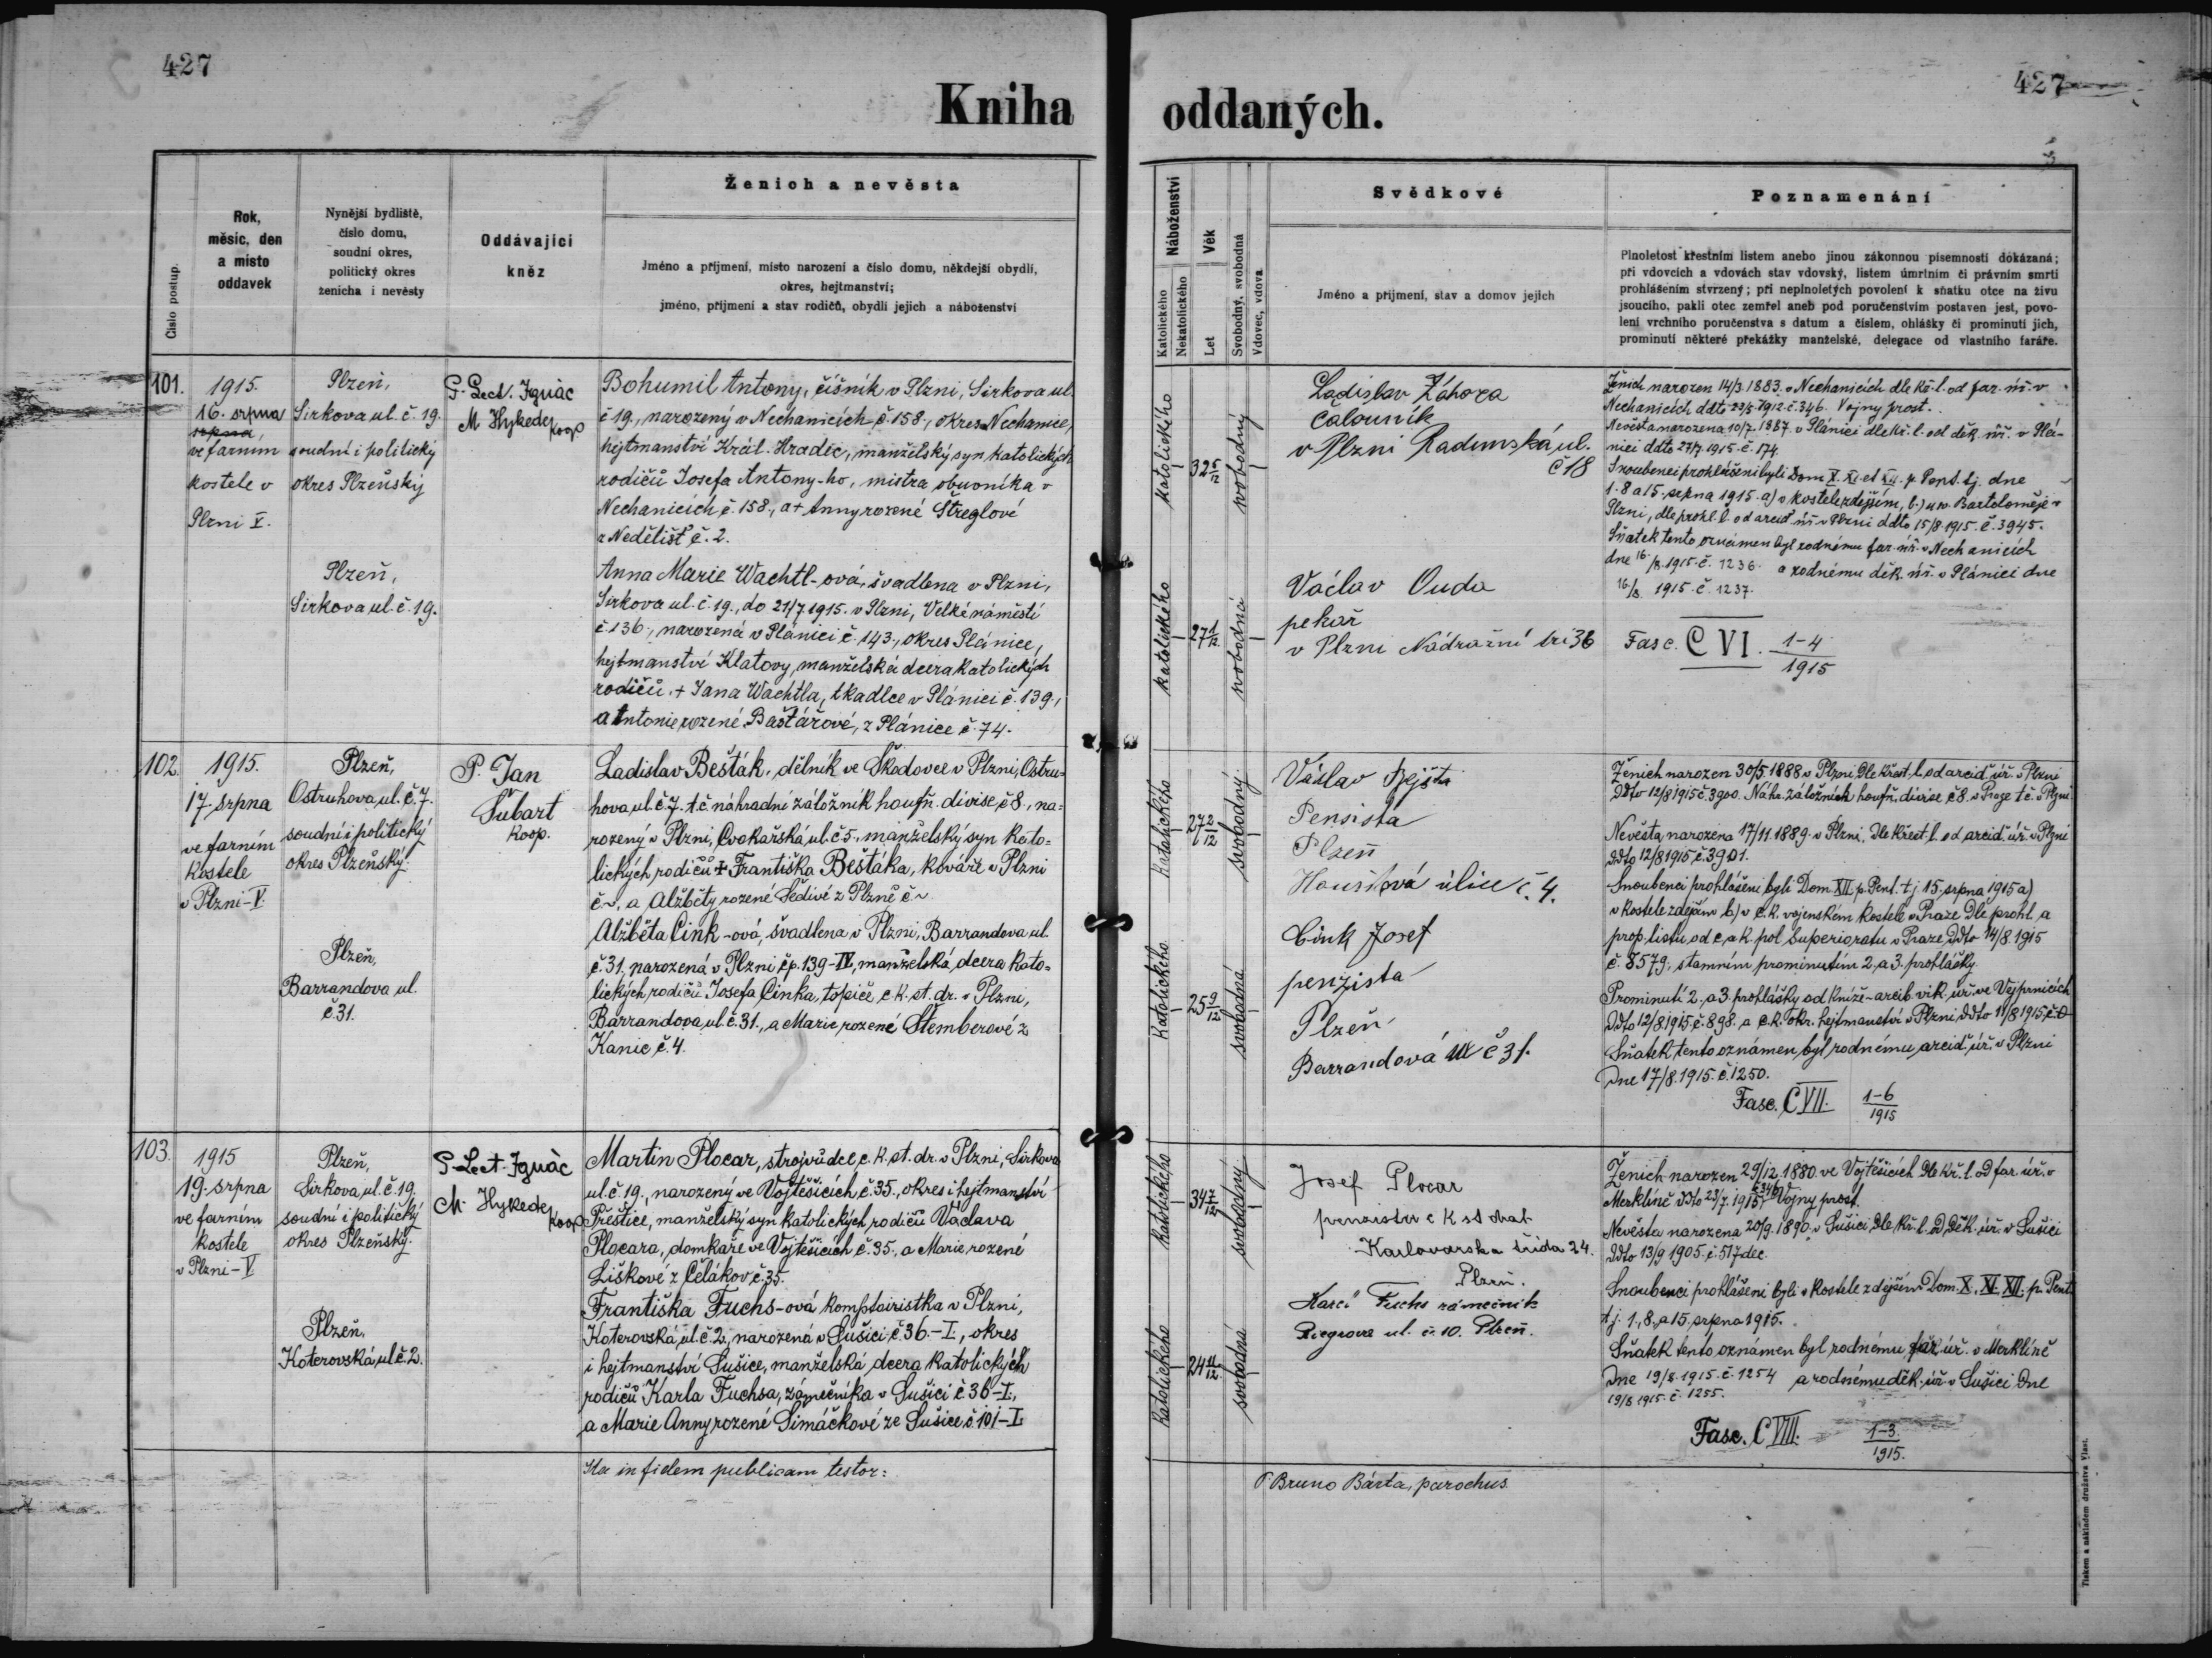 427
427
Kniha oddaných.
Číslo postup.
Rok,
měsíc, den
a místo
oddavek
Nynější bydliště,
číslo domu,
soudní okres,
politický okres
ženicha i nevěsty
Oddávající
kněz
Ženich a nevěsta
Jméno a příjmení, místo narození a číslo domu, někdejší obydlí,
okres, hejtmanství;
jméno, příjmení a stav rodičů, obydlí jejich a náboženství
Náboženství
Katolického
Nekatolického
Věk
Let
Svobodný, svobodná
Vdovec, vdova
Svědkové
Jméno a příjmení, stav a domov jejich
Poznamenání
Plnoletost křestním listem anebo jinou zákonnou písemností dokázaná;
při vdovcích a vdovách stav vdovský, listem úmrtním či právním smrti
prohlášením stvrzený; při neplnoletých povolení k sňatku otce na živu
jsoucího, pakli otec zemřel aneb pod poručenstvím postaven jest, povo-
lení vrchního poručenstva s datum a číslem, ohlášky či prominutí jich,
prominutí některé překážky manželské, delegace od vlastního faráře.
101.
1915.
16. srpna
srpna,
ve farním
kostele v
Plzni V.
Plzeň,
Sirkova ul. č. 19.
soudní i politický
okres Plzeňský
Plzeň,
Sirkova ul. č. 19.
P. Lect. Ignác
M Hykede
koop
Bohumil Antony, číšník v Plzni, Sirkova ul.
č 19., narozený v Nechanicích č. 158., okres Nechanice,
hejtmanství Král. Hradec, manželský syn katolických
rodičů Josefa Antony-ho, mistra obuvníka v
Nechanicích č. 158., a + Anny rozené Štreglové
z Nedělišť č. 2.
Anna Marie Wachtl-ová, švadlena v Plzni,
Sirkova ul. č. 19., do 21/7 1915. v Plzni, Velké náměstí
č 136., narozená v Plánici č. 143., okres Plánice,
hejtmanství Klatovy, manželská dcera katolických
rodičů + Jana Wachtla, tkadlce v Plánici č. 139.,
a Antonie rozené Baštářové, z Plánice č. 74.
katolického
32 5/12
svobodný
katolického
27 1/12
svobodná
Ladislav Záhora
čalouník
v Plzni Radimská ul.
č 18
Václav Ouda
pekař
v Plzni Nádražní tř. 36
Ženich narozen 14/3. 1883. v Nechanicích dle kř. l. od far. úř. v
Nechanicích ddto 23/5. 1912. č. 346. Vojny prost.
Nevěsta narozena 10/7. 1887. v Plánici dle kř. l. od děk. úř. v Plá-
nici ddto 27/7. 1915. č. 174.
Snoubenci prohlášeni byli Dom X. XI. et XII. p. Pent. tj. dne
1. 8 a 15. srpna 1915. a) v kostele zdejším, b.) u sv. Bartoloměje v
Plzni, dle prohl. l. od arcid. úř. v Plzni ddto 15/8. 1915. č. 3945.
Sňatek tento oznámen byl rodnému far. úř. v Nechanicích
dne 16./8. 1915. č. 1236. a rodnému děk. úř. v Plánici dne
16./8. 1915. č. 1237.
Fasc. C VI. 1-4
1915
102.
1915.
17 srpna
ve farním
kostele
v Plzni-V.
Plzeň,
Ostruhova, ul. č. 7.
soudní i politický
okres Plzeňský.
Plzeň,
Barrandova ul.
č. 31.
P. Jan
Šubart
koop.
Ladislav Bešták, dělník ve Škodovce v Plzni, Ostru-
hova, ul. č. 7. t. č. náhradní záložník houfn. divise, č 8., na-
rozený v Plzni, Cvokařská, ul. č 5., manželský syn kato-
lických rodičů + Františka Beštáka, kováře v Plzni
č. ~, a Alžběty rozené Šedivé z Plzně č ~
Alžběta Cink-ová, švadlena v Plzni, Barrandova ul.
č 31, narozená v Plzni čp. 139-IV, manželská dcera kato-
lických rodičů Josefa Cinka, topiče c. k. st. dr. v Plzni,
Barrandova, ul. č. 31., a Marie rozené Štemberové z
Kanic č. 4.
katolického
27 2/12
svobodný
katolického
25 9/12
svobodná
Václav
Pensista
Plzeň
ulice č. 4.
Cink Josef
penzista
Plzeň
Barrandová ul č 31.
Ženich narozen 30/5. 1888 v Plzni, dle křest. l. od arcid. úř. v Plzni
ddto 12/8 1915 č. 3900. Náhr. záložník houfn. divise č 8. v Praze t. č. v Plzni.
Nevěsta narozena 17/11. 1889. v Plzni, dle křest l. od arcid. úř. v Plzni
ddto 12/8 1915 č. 3901.
Snoubenci prohlášeni byli Dom XII p. Pent. t j. 15. srpna 1915 a)
v kostele zdejším b) v c. k. vojenském kostele v Praze dle prohl. a
prop. listu od c. a k. pol. superioratu v Praze ddto 14/8. 1915
č. 8579., s tamním prominutím 2. a 3. prohlášky.
Prominutí 2. a 3. prohlášky od kníže-arcib. vik. úř. ve Vejprnicích
ddto 12/8. 1915. č. 898. a c. k. okr. hejtmanství v Plzni ddto 11/8 1915, č. 0
Sňatek tento oznámen byl rodnému arcid. úř. v Plzni
dne 17/8. 1915. č. 1250.
Fasc. C VII. 1-6
1915
103.
1915
19. srpna
ve farním
kostele
v Plzni-V
Plzeň,
Sirkova, ul. č. 19.
soudní i politický
okres Plzeňský.
Plzeň,
Koterovská, ul č. 2.
P. Lect. Ignác
M. Hykede
koop
Martin Plocar, strojvůdce, c. k. st. dr. v Plzni, Sirkova
ul. č. 19., narozený ve Vojtěšicích, č. 35., okres i hejtmanství
Přeštice, manželský syn katolických rodičů Václava
Plocara, domkaře ve Vojtěšicích č. 35., a Marie, rozené
Liškové z Čelákov č. 35.
Františka Fuchs-ová komptoiristka v Plzni,
Koterovská, ul. č. 2, narozená v Sušici č. 36.-I., okres
i hejtmanství Sušice, manželská dcera katolických
rodičů Karla Fuchsa, zámečníka v Sušici č 36-I.,
a Marie Anny rozené Šimáčkové ze Sušice č. 101-I.
katolického
34 7/12
svobodný
katolického
24 11/12
svobodná
Josef Plocar
penzista c k st drah
Karlovarska třída 24.
Plzeň.
Karel Fuchs zámečník
Riegrova ul. č. 10. Plzeň.
Ženich narozen 29/12. 1880. ve Vojtěšicích dle kř. l. od far. úř. v
Merklíně ddto 23/7. 1915. Vojny prost.
Nevěsta narozena 20/9. 1890. v Sušici, dle kř. l. od děk. úř. v Sušici
ddto 13/9 1905. č. 517 dec.
Snoubenci prohlášeni byli v kostele zdejším Dom. X. XI. XII. p. Pent
t. j. 1., 8., a 15. srpna 1915.
Sňatek tento oznámen byl rodnému far. úř. v Merklíně
dne 19/8. 1915. č. 1254 a rodnému děk. úř. v Sušici dne
19/8 1915. č. 1255.
Fasc. C VIII. 1-3.
1915.
Ita in fidem publicam testor:
P. Bruno Bárta, parochus
Tiskem a nákladem družstva Vlast.